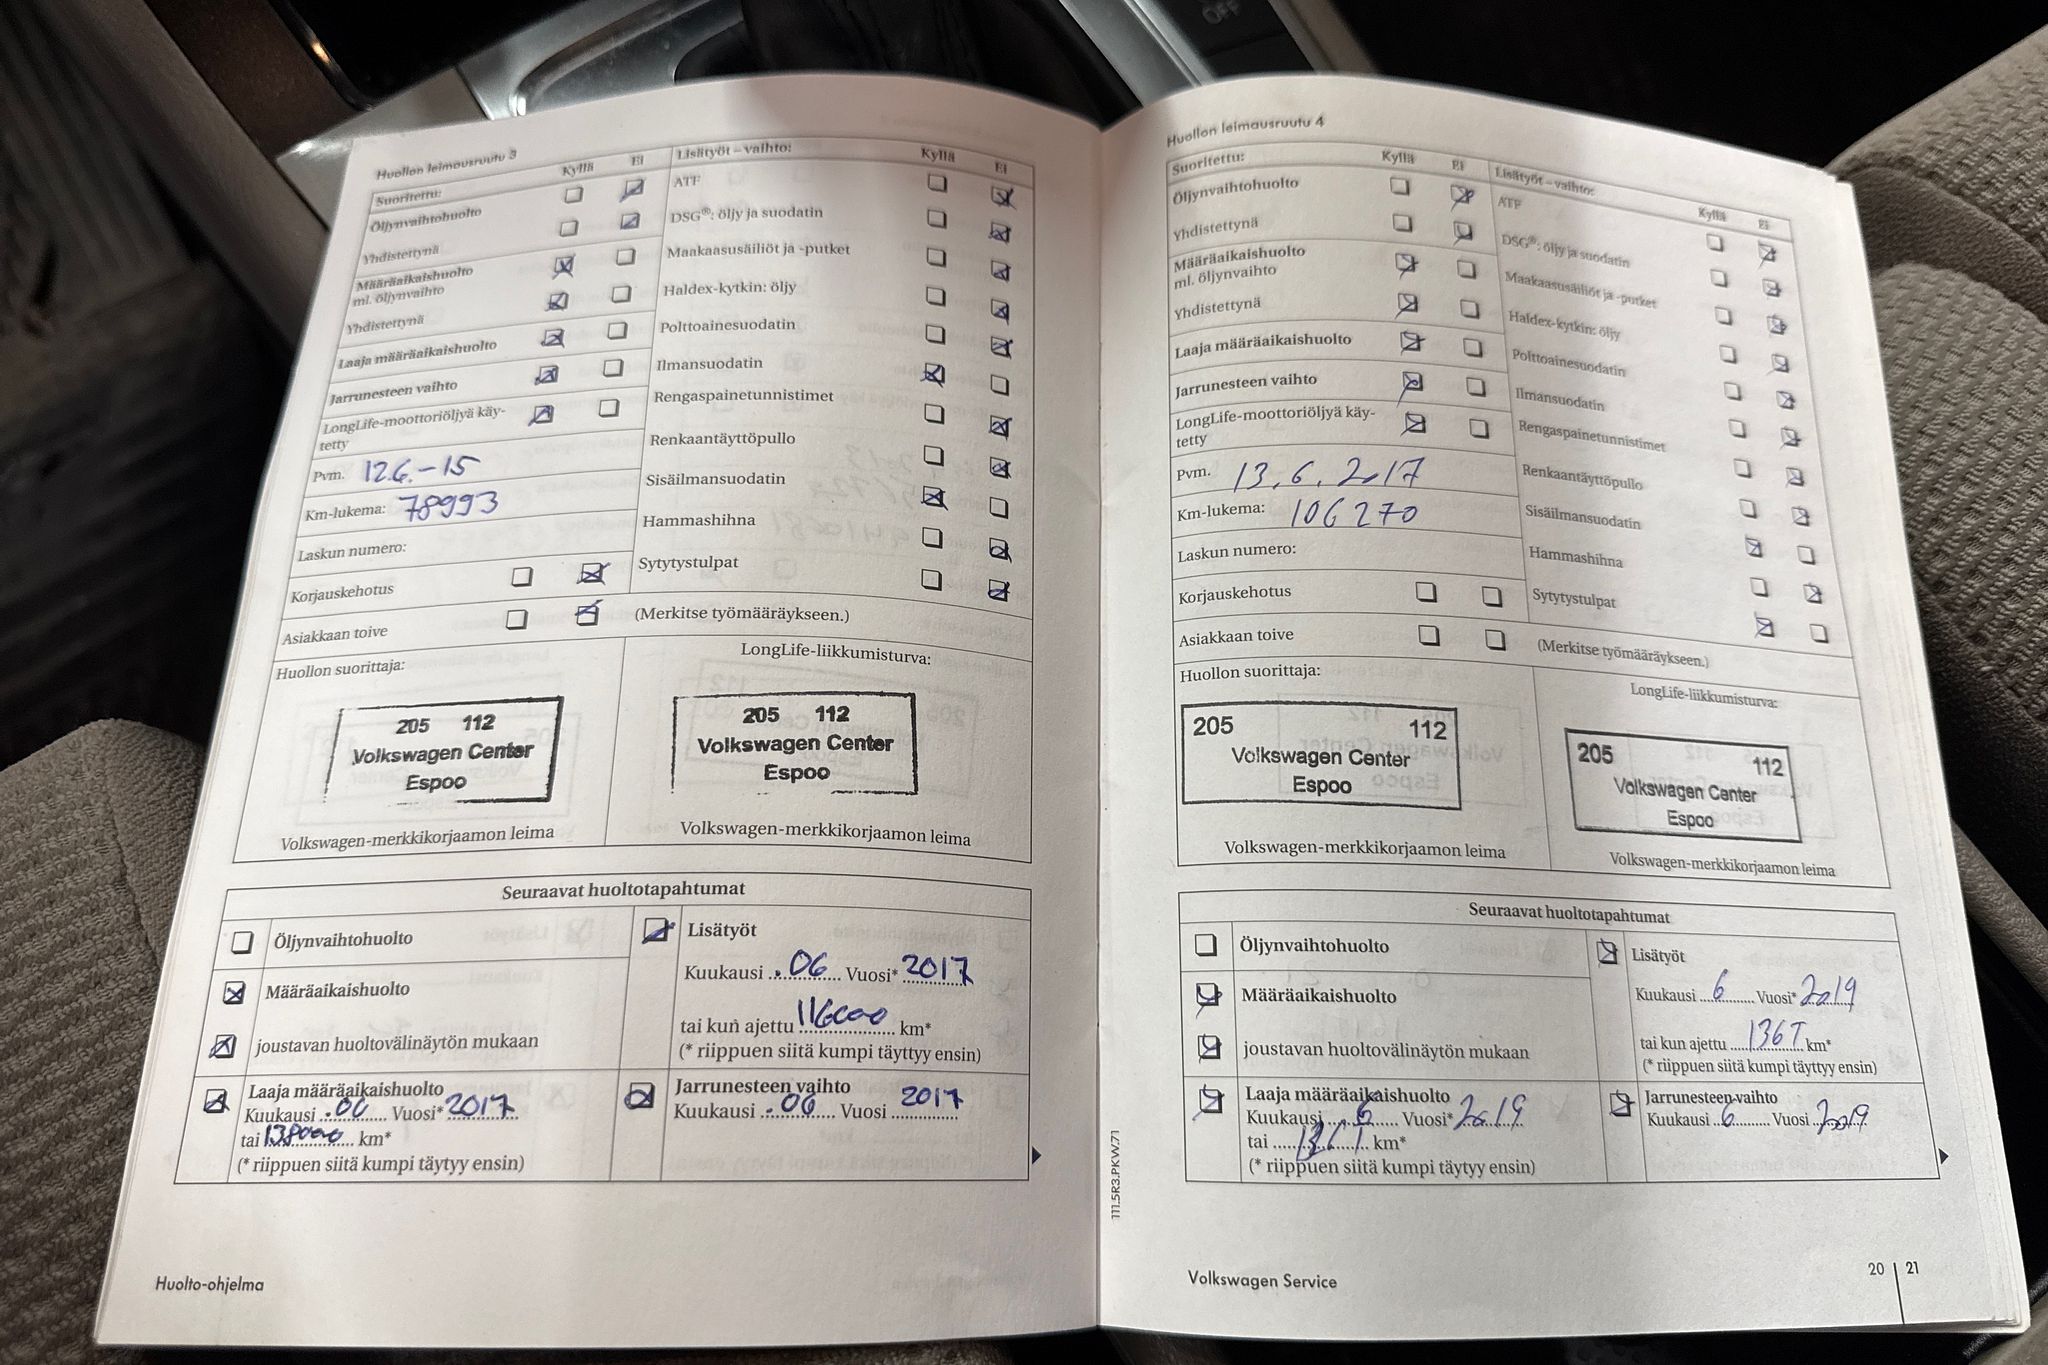 OFF
Huollon leimausruutu 3
Suoritettu: Kyllä Ei
Öljynvaihtohuolto
Yhdistettynä
Määräaikaishuolto
ml. öljynvaihto
Yhdistettynä
Laaja määräaikaishuolto
Jarrunesteen vaihto
LongLife-moottoriöljyä käy-
tetty
Pvm. 12.6.-15
Km-lukema: 78993
Laskun numero:
Korjauskehotus
Asiakkaan toive
(Merkitse työmääräykseen.)
Lisätyöt – vaihto: Kyllä Ei
ATF
DSG®: öljy ja suodatin
Maakaasusäiliöt ja -putket
Haldex-kytkin: öljy
Polttoainesuodatin
Ilmansuodatin
Rengaspainetunnistimet
Renkaantäyttöpullo
Sisäilmansuodatin
Hammashihna
Sytytystulpat
Huollon suorittaja:
205 112
Volkswagen Center
Espoo
Volkswagen-merkkikorjaamon leima
LongLife-liikkumisturva:
205 112
Volkswagen Center
Espoo
Volkswagen-merkkikorjaamon leima
Seuraavat huoltotapahtumat
Öljynvaihtohuolto
Määräaikaishuolto
joustavan huoltovälinäytön mukaan
Lisätyöt
Kuukausi 06 Vuosi* 2017
tai kun ajettu 116000 km*
(* riippuen siitä kumpi täyttyy ensin)
Laaja määräaikaishuolto
Kuukausi 06 Vuosi* 2017
tai 138000 km*
(* riippuen siitä kumpi täytyy ensin)
Jarrunesteen vaihto
Kuukausi 06 Vuosi 2017
Huolto-ohjelma
Huollon leimausruutu 4
Suoritettu: Kyllä Ei
Öljynvaihtohuolto
Yhdistettynä
Määräaikaishuolto
ml. öljynvaihto
Yhdistettynä
Laaja määräaikaishuolto
Jarrunesteen vaihto
LongLife-moottoriöljyä käy-
tetty
Pvm. 13.6.2017
Km-lukema: 106270
Laskun numero:
Korjauskehotus
Asiakkaan toive
(Merkitse työmääräykseen.)
Lisätyöt – vaihto: Kyllä Ei
ATF
DSG®: öljy ja suodatin
Maakaasusäiliöt ja -putket
Haldex-kytkin: öljy
Polttoainesuodatin
Ilmansuodatin
Rengaspainetunnistimet
Renkaantäyttöpullo
Sisäilmansuodatin
Hammashihna
Sytytystulpat
Huollon suorittaja:
205 112
Volkswagen Center
Espoo
Volkswagen-merkkikorjaamon leima
LongLife-liikkumisturva:
205 112
Volkswagen Center
Espoo
Volkswagen-merkkikorjaamon leima
Seuraavat huoltotapahtumat
Öljynvaihtohuolto
Määräaikaishuolto
joustavan huoltovälinäytön mukaan
Lisätyöt
Kuukausi 6 Vuosi* 2019
tai kun ajettu 136T km*
(* riippuen siitä kumpi täyttyy ensin)
Laaja määräaikaishuolto
Kuukausi 6 Vuosi* 2019
tai 136T km*
(* riippuen siitä kumpi täytyy ensin)
Jarrunesteen vaihto
Kuukausi 6 Vuosi 2019
111.5R3.PKW.71
Volkswagen Service
20 21